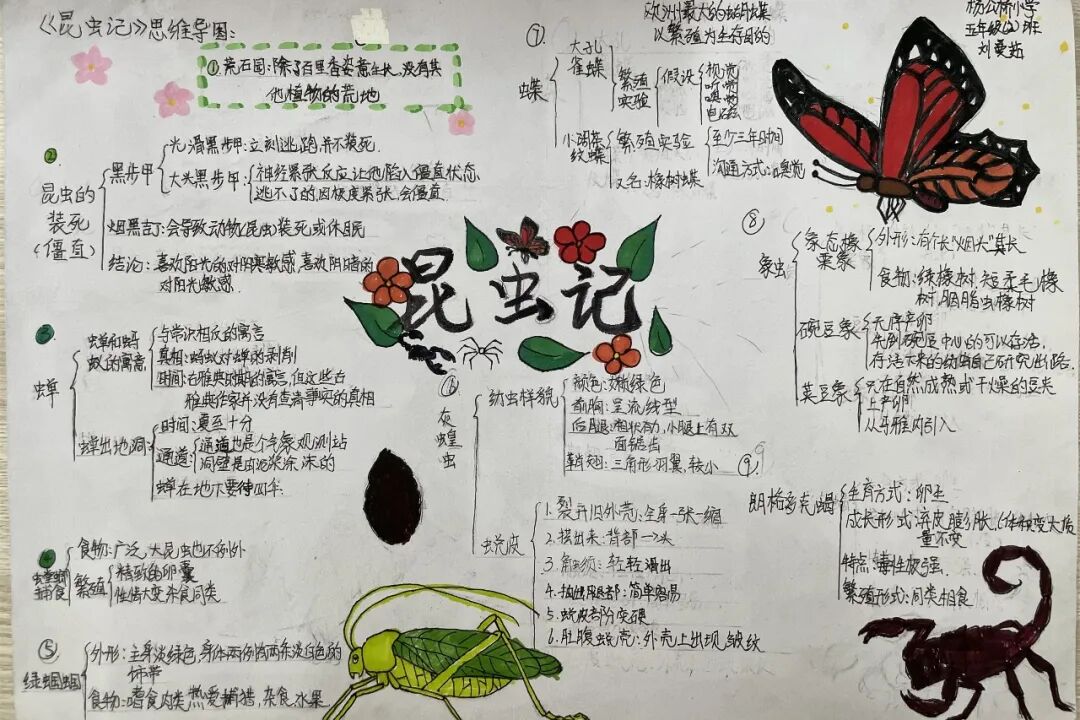 《昆虫记》思维导图:
①荒石园:除了百里香姿意生长,没有其
他植物的荒地
②
昆虫的
装死
(僵直)
黑步甲
光滑黑步甲:立刻逃跑,并不装死.
大头黑步甲:
神经紧张反应,让他陷入僵直状态
逃不了的,因极度紧张,会僵直
烟黑吉丁:会导致动物(昆虫)装死或休眠
结论:喜欢阳光的对阴寒敏感,喜欢阴暗的
对阳光敏感.
蝉
蝉和蚂
蚁的寓言
与常识相反的寓言
真相:蚂蚁对蝉的剥削
时间:古雅典时期的寓言,但这些古
雅典作家并没有查清事实的真相
蝉出地洞
时间:夏至十分
通道:
通道也是个气象观测站
洞壁是由泥浆涂抹的
蝉在地下要待四年.
捕食
食物:广泛,大昆虫也不例外
繁殖
精致的卵囊
性情大变,杂食同类
⑤
绿蝈蝈
外形:全身淡绿色,身体两侧有两条淡白色的
饰带
食物:嗜食肉类,热爱捕猎,杂食,水果.
昆虫记
⑥
灰蝗虫
幼虫样貌
颜色:嫩绿色
前胸:呈流线型
后腿:粗壮有力,小腿上有双
面锯齿
鞘翅:三角形羽翼,较小
蜕皮
1.裂开旧外壳:全身一张一缩
2.拱出来:背部→头
3.触须:轻轻滑出
4.抽出腿部:简单容易
5.蜕皮部分变硬
6.肚腹蜕壳:外壳上出现皱纹
⑦
欧洲最大的蛾蝶
以繁殖为生存目的
蝶
大孔
雀蝶
繁殖
实验
假设
视觉
听觉
嗅觉
电磁
小阔条
纹蝶
繁殖实验
至少三年时间
沟通方式:嗅觉
又名:橡树蝶
杨公桥小学
五年级(2)班
⑧
象虫
象态橡
栗象
外形:有个长“烟头”鼻长
食物:绿橡树,短柔毛橡
树,胭脂虫橡树
豌豆象
无序产卵
先到豌豆中心的可以存活.
存活下来的幼虫自己研究出路.
菜豆象
只在自然成熟或干燥的豆夹
上产卵
⑨
朗格多克蝎
生育方式:卵生
成长形式:弃皮膨胀(体积变大质
量不变
特点:毒性极强.
繁殖形式:同类相食